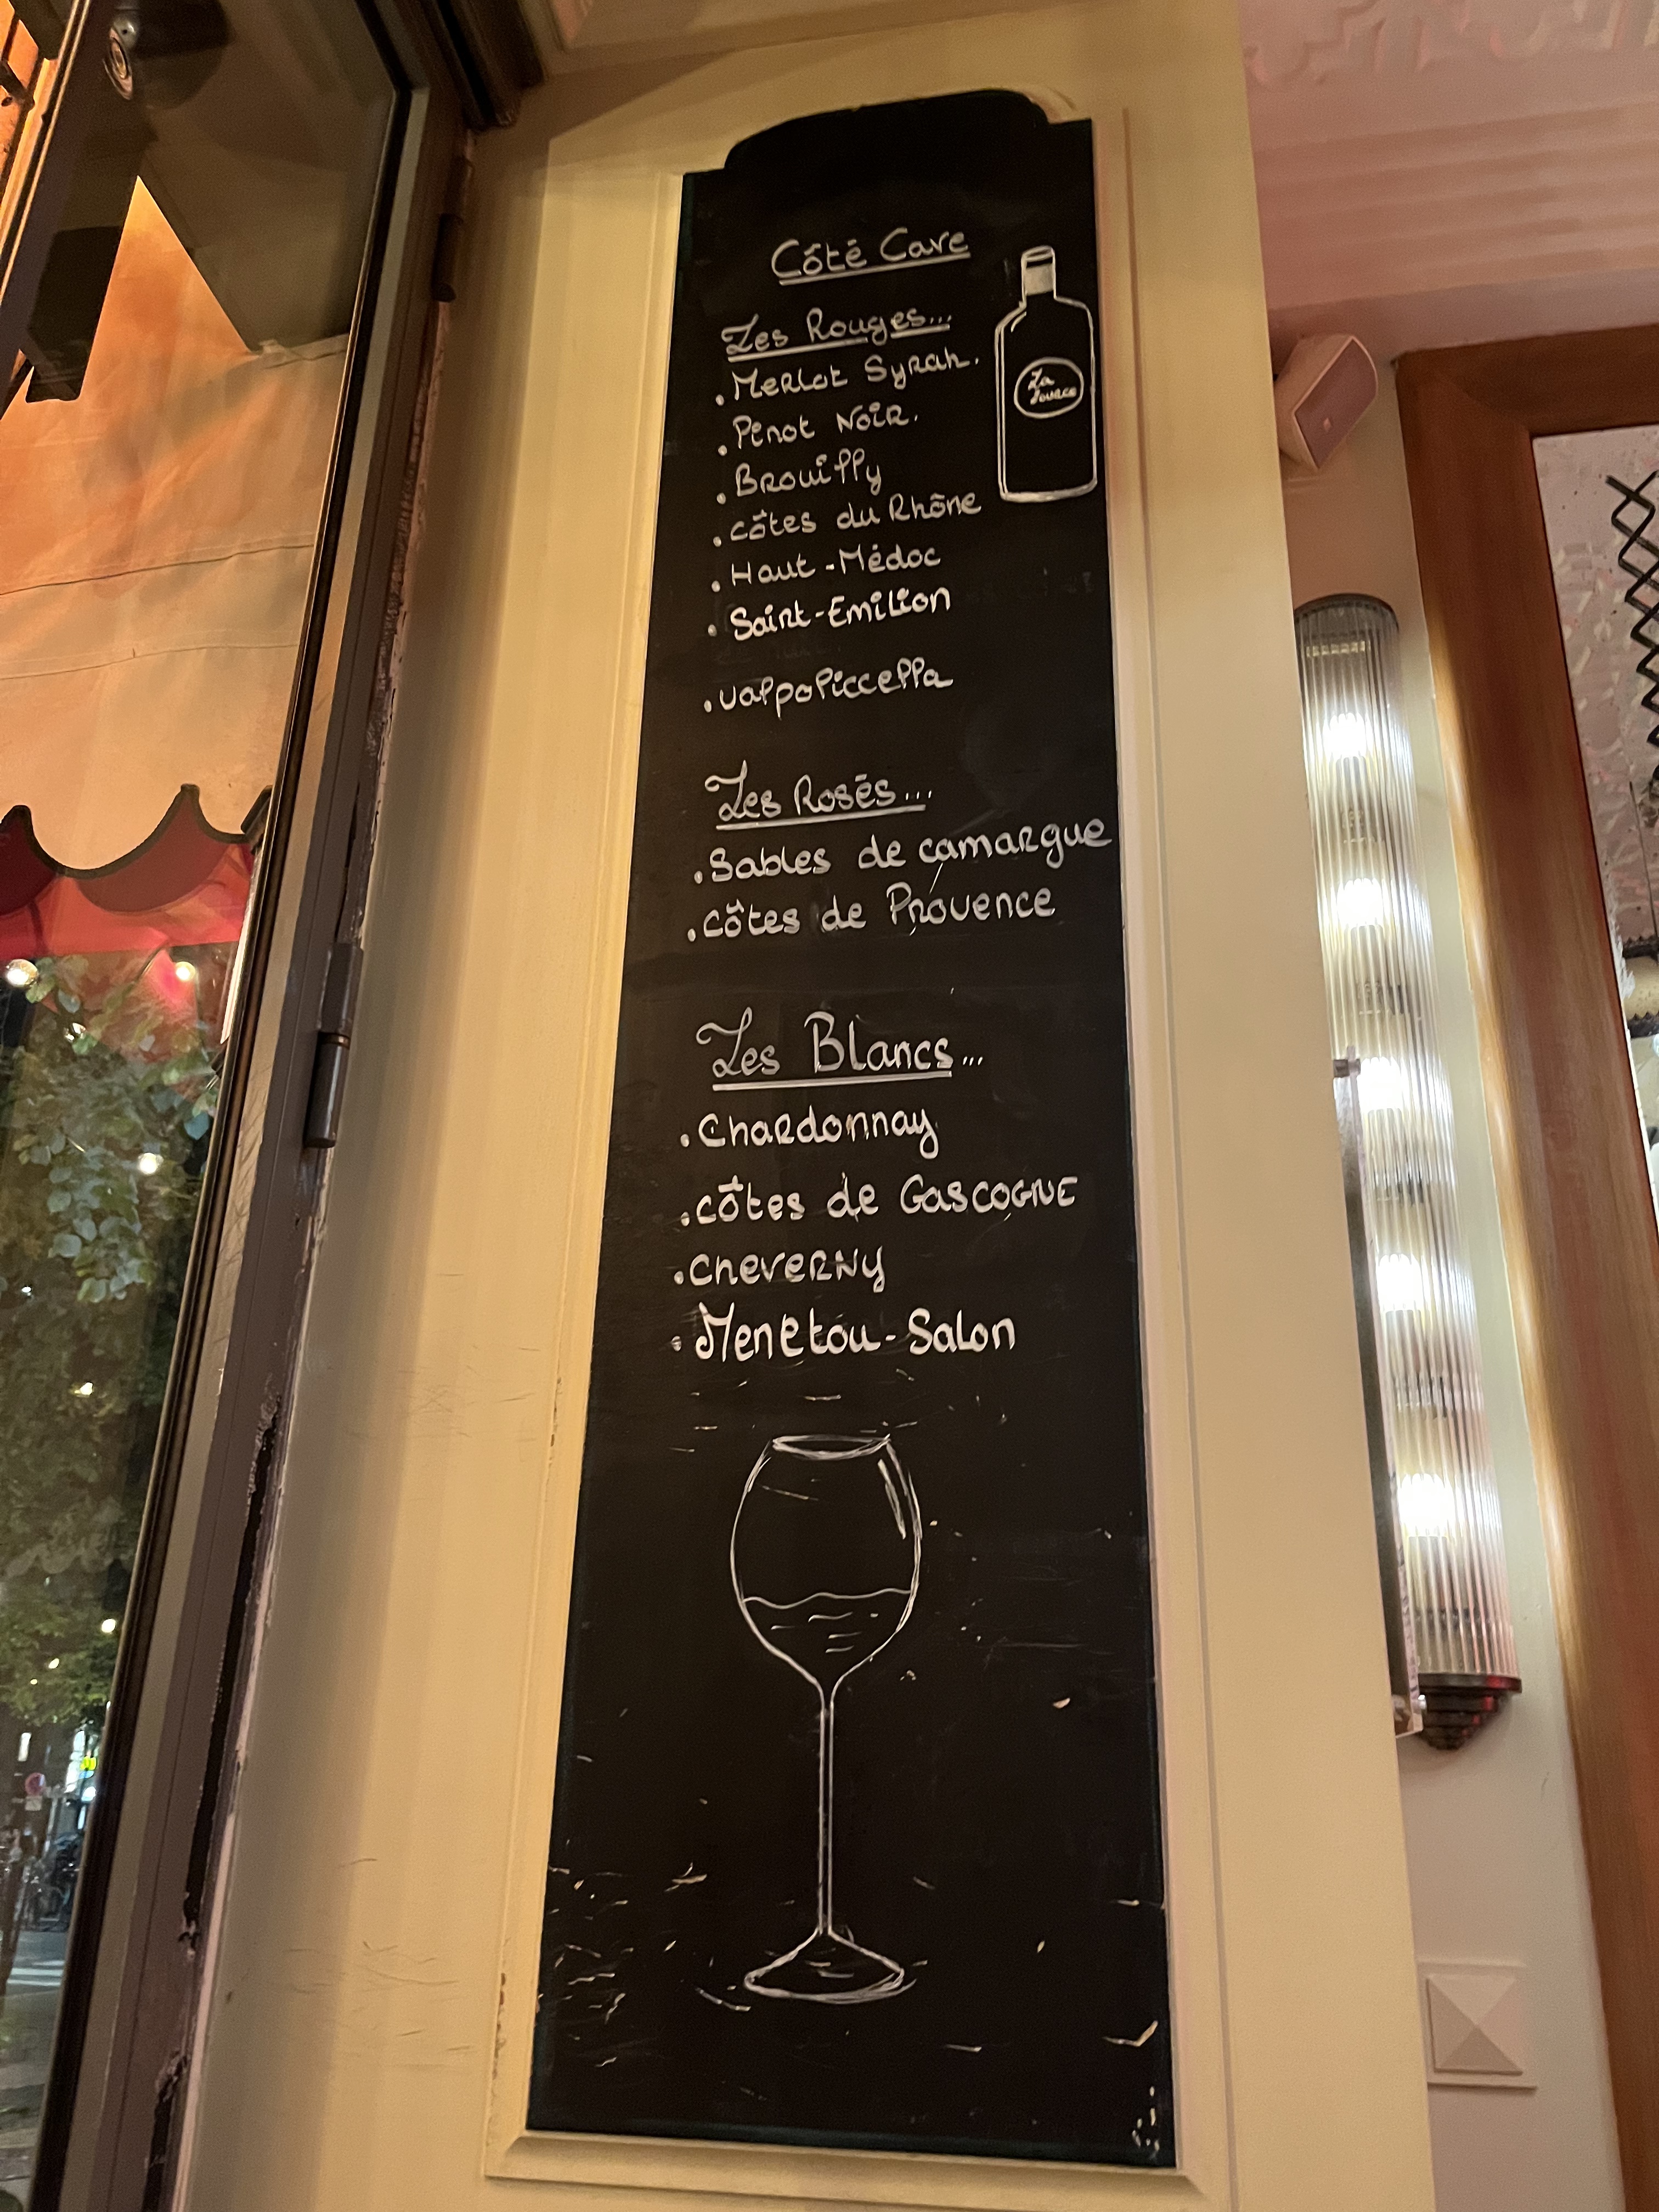 Côté Cave
Les Rouges...
. Merlot Syrah.
. Pinot Noir.
. Brouilly
. côtes du Rhône
. Haut-Médoc
. Saint-Emilion
. valpoliccella
La
Source
Les Rosés...
. Sables de camargue
. côtes de Provence
Les Blancs...
. Chardonnay
. côtes de GASCOGNE
. cheverny
. Menetou-Salon